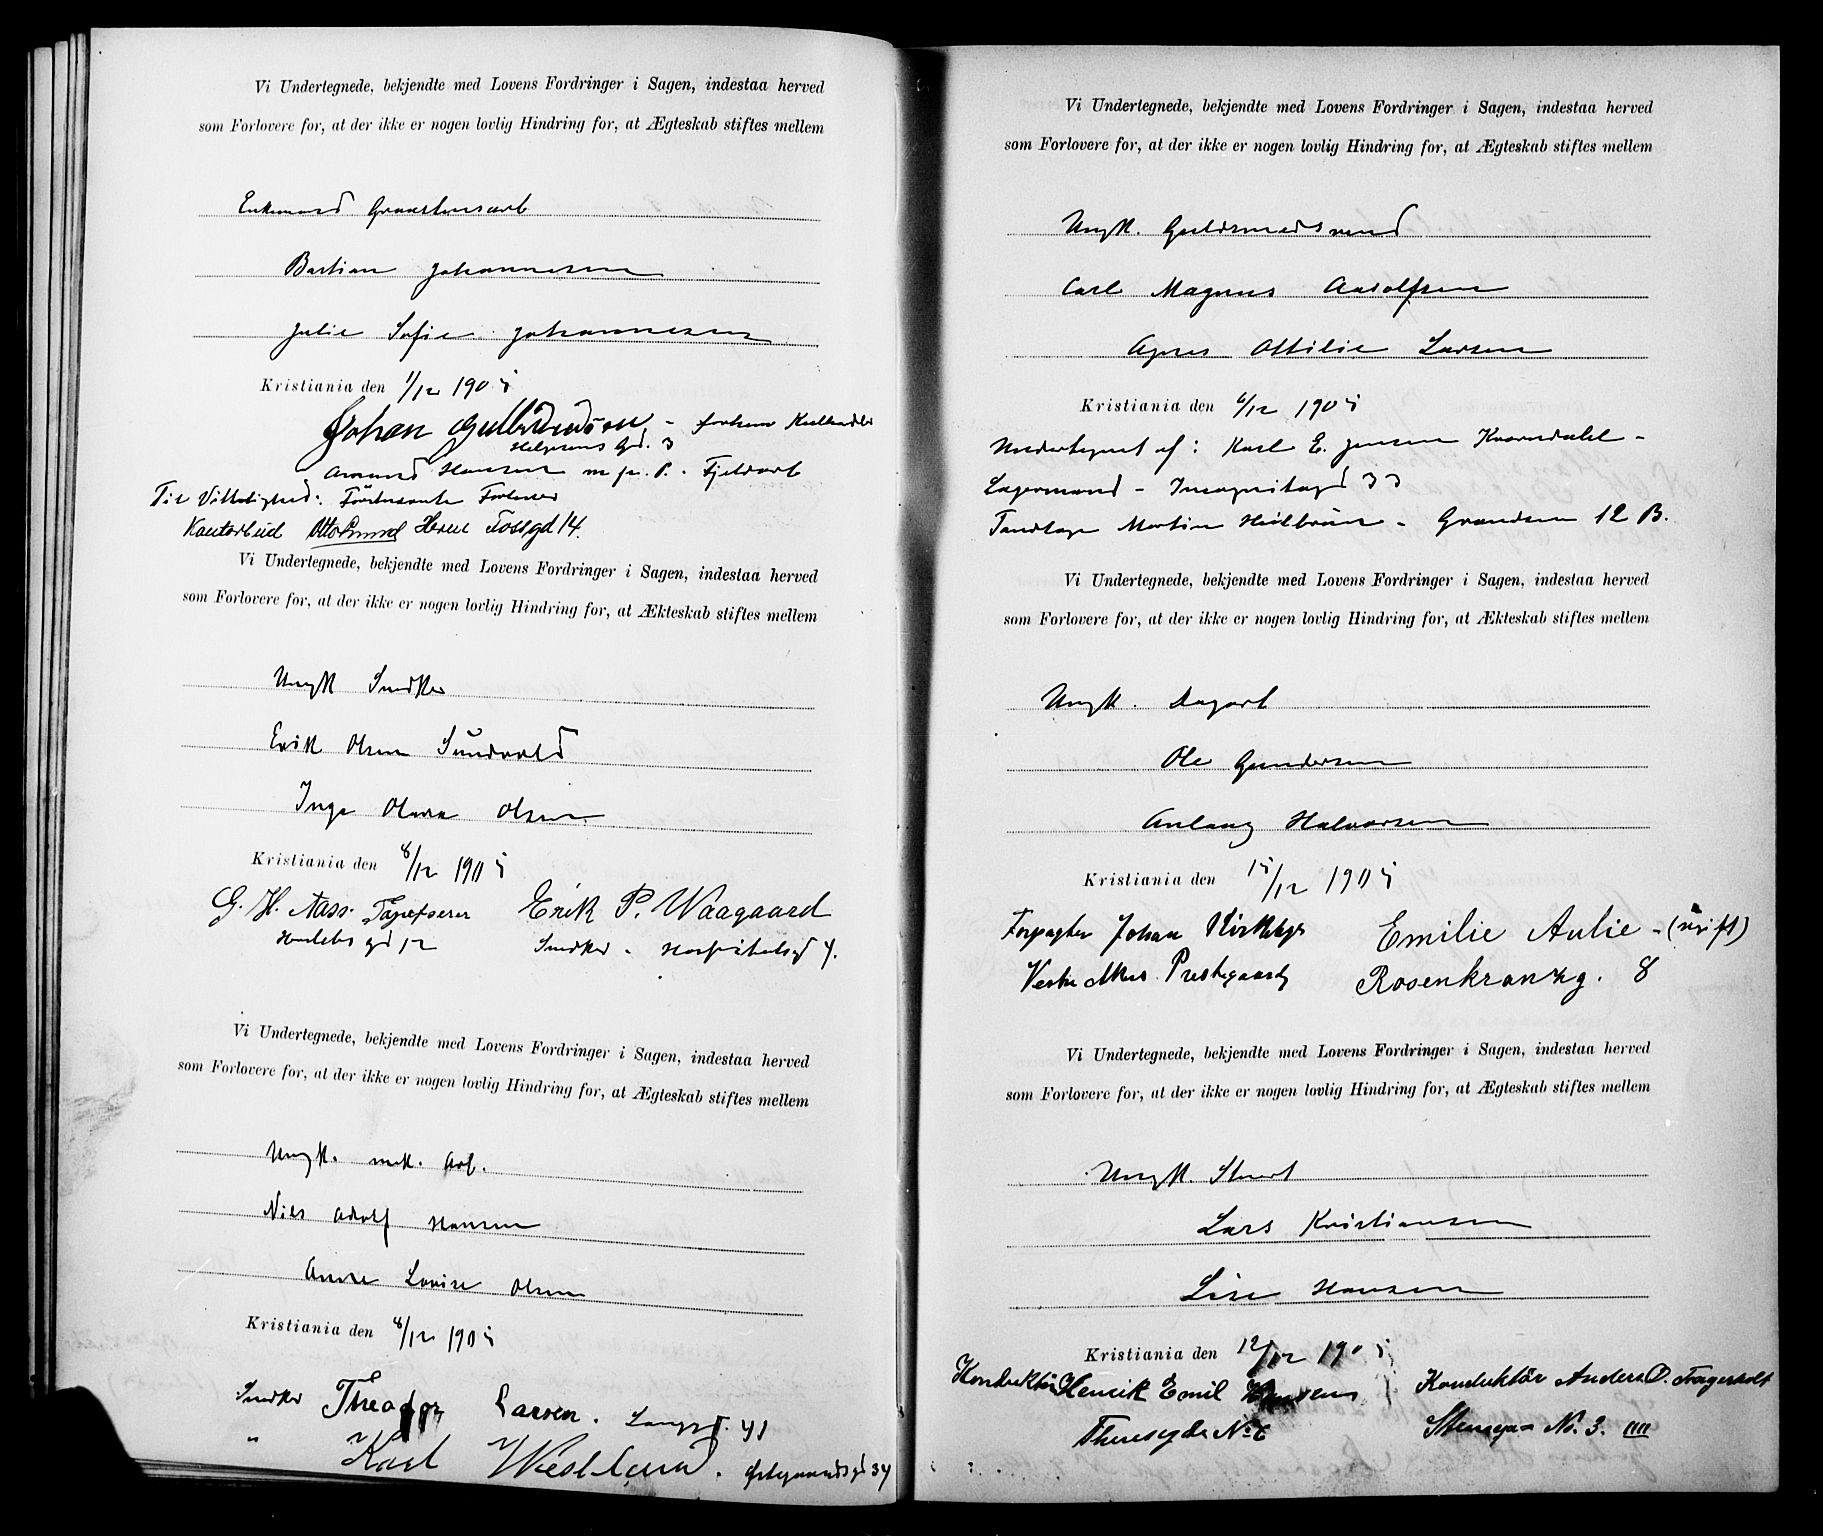 Vi Undertegnede, bekjendte med Lovens Fordringer i Sagen, indestaa herved
som Forlovere for, at der ikke er nogen lovlig Hindring for, at Ægteskab stiftes mellem
Enkemand
Bastian Johannesen
Julie Sofie Johannesen
Kristiania den 1/12 1905
Johan Gulbrandsen -
Helgesens Gd. 3
Amund Hansen m. p. P. - Fjeldarb
Til Vitterlighed:
Kontorbud Fossgd 14.
Vi Undertegnede, bekjendte med Lovens Fordringer i Sagen, indestaa herved
som Forlovere for, at der ikke er nogen lovlig Hindring for, at Ækteskab stiftes mellem
Ungk Snedker
Erik Olsen Sundvold
Inga Olava Olsen
Kristiania den 8/12 1905
G. H. Aass. Tapetserer
Herslebs gd 12
Erik P. Waagaard
Snedker - Hospitalsgd 4.
Vi Undertegnede, bekjendte med Lovens Fordringer i Sagen, indestaa herved
som Forlovere for, at der ikke er nogen lovlig Hindring for, at Ægteskab stiftes mellem
Ungk. mek. Arb.
Nils Adolf Hansen
Anna Lovise Olsen
Kristiania den 8/12 1905
Snedker Theodor Larsen. Langgd. 41
" Karl Westlund.
Vi Undertegnede, bekjendte med Lovens Fordringer i Sagen, indestaa herved
som Forlovere for, at der ikke er nogen lovlig Hindring for, at Ægteskab stiftes mellem
Ungk. Guldsmedsvend
Carl Magnus Adolfsen
Agnes Ottilie Larsen
Kristiania den 6/12 1905
Undertegnet af: Karl E. Jensen
Lagermand - Incognitogd 33
Martin - Grændsen 12 B.
Vi Undertegnede, bekjendte med Lovens Fordringer i Sagen, indestaa herved
som Forlovere for, at der ikke er nogen lovlig Hindring for, at Ækteskab stiftes mellem
Ungk. Dagarb
Ole Gundersen
Anlaug Halvorsen
Kristiania den 15/12 1905
Forpagter Johan Kirkeby
Vestre Akers Prestegaard
Emilie Aulie - (ugift)
Rosenkranzg. 8
Vi Undertegnede, bekjendte med Lovens Fordringer i Sagen, indestaa herved
som Forlovere for, at der ikke er nogen lovlig Hindring for, at Ægteskab stiftes mellem
Ungk. Stenarb
Lars Kristiansen
Lise Hansen
Kristiania den 12/12 1905
Konduktør Henrik Emil Hansen
Theresegade No 6
Konduktör Anders O. Fagerholt
Stensga- No. 3. IIII